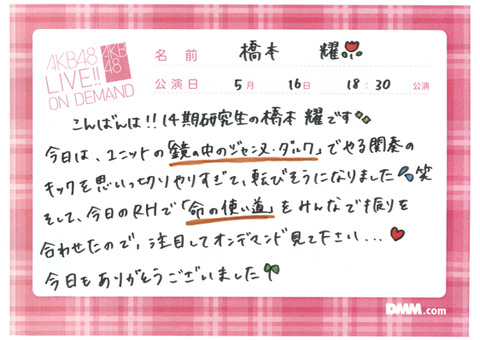 AKB48
LIVE!!
ON DEMAND
AKB
48
名前 橋本 耀
公演日 5月 16日 18:30 公演
こんばんは!!14期研究生の橋本 耀です
今日は、ユニットの「鏡の中のジャンヌ・ダルク」でやる間奏の
キックを思いっ切りやりすぎて、転びそうになりました 笑
そして、今日のRHで「命の使い道」をみんなで振りを
合わせたので、注目してオンデマンド見て下さい...
今日もありがとうございました
DMM.com